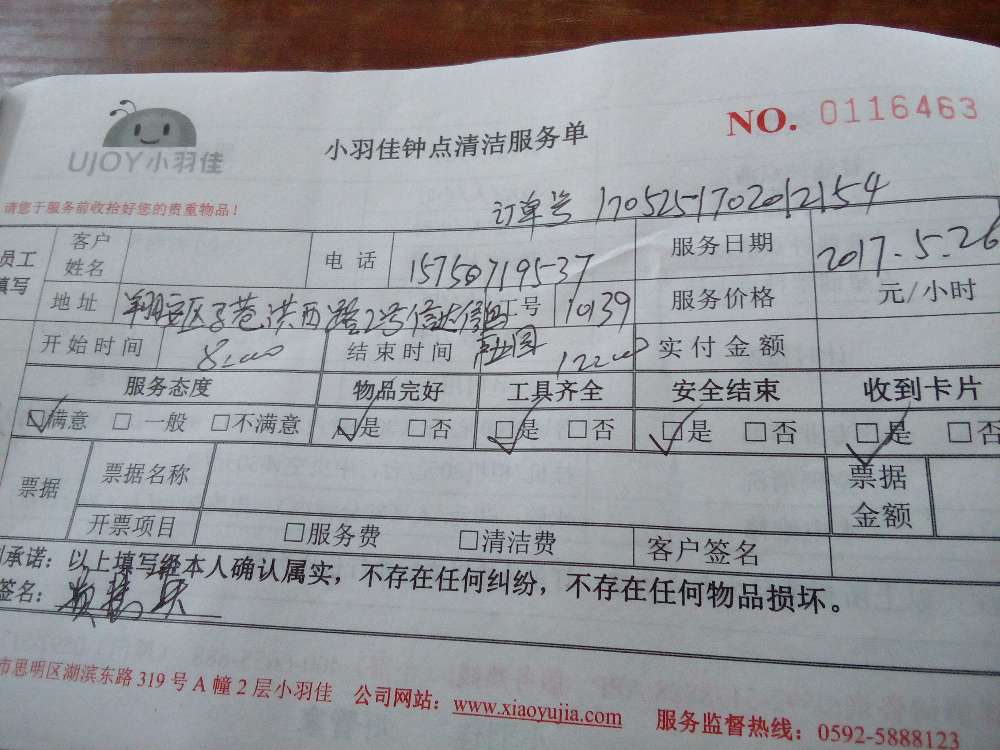 UJOY小羽佳
小羽佳钟点清洁服务单
NO. 0116463
请您于服务前收拾好您的贵重物品！
订单号 1705251702012154
员工填写 客户姓名 电话 15750719537 服务日期 2017.5.26
地址 翔安区子巷洪西路2号信达 工号 10139 服务价格 元/小时
开始时间 8:00 结束时间 12:00 实付金额
服务态度 物品完好 工具齐全 安全结束 收到卡片
☑满意 □一般 □不满意 ☑是 □否 ☑是 □否 ☑是 □否 ☑是 □否
票据 票据名称 票据金额
开票项目 □服务费 □清洁费 客户签名
承诺：以上填写经本人确认属实，不存在任何纠纷，不存在任何物品损坏。
签名：
市思明区湖滨东路319号A幢2层小羽佳 公司网站：www.xiaoyujia.com 服务监督热线：0592-5888123